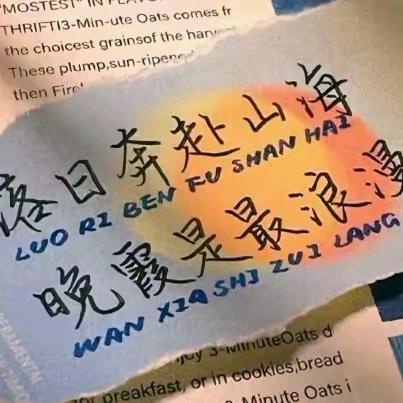 "MOSTEST" IN
THRIFTI3-Min-ute Oats comes fr
the choicest grainsof the har
These plump,sun-ripen
then Fire
落日奔赴山海
LUO RI BEN FU SHAN HAI
晚霞是最浪漫
WAN XIA SHI ZUI LANG
joy 3-MinuteOats d
breakfast, or in cookies,bread
Minute Oats i